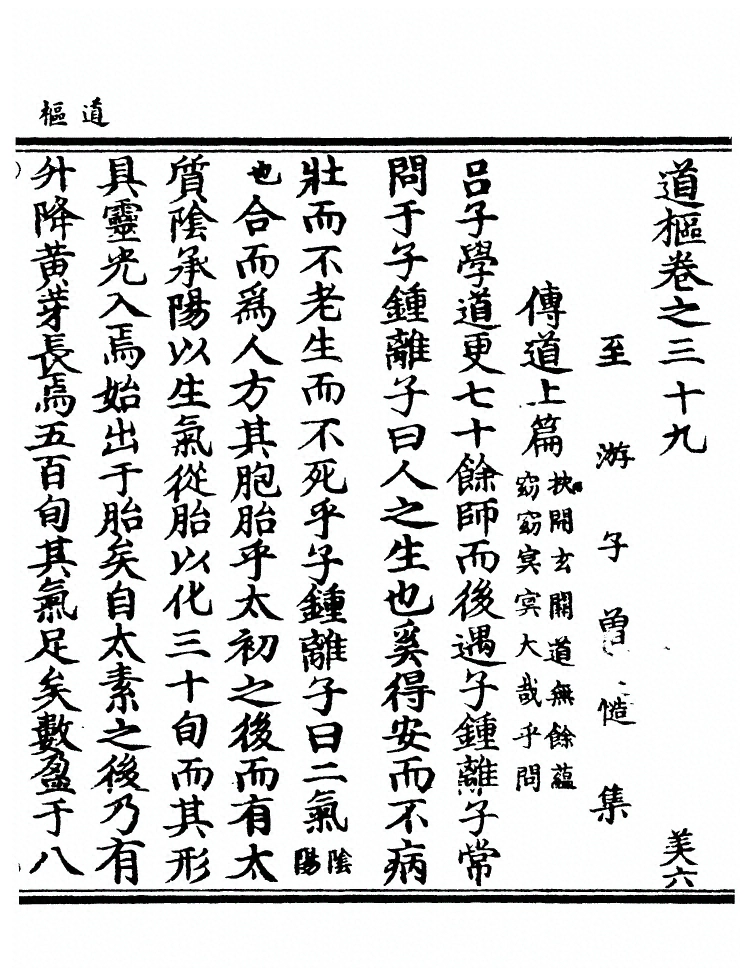 道樞
道樞卷之三十九　美六
至游子曾慥集
傳道上篇　抉開玄關道無餘蘊窈窈冥冥大哉乎問
呂子學道更七十餘師而後遇子鍾離子常
問于子鍾離子曰人之生也奚得安而不病
壯而不老生而不死乎子鍾離子曰二氣陰陽
也合而爲人方其胞胎乎太初之後而有太
質陰承陽以生氣從胎以化三十旬而其形
具靈光入焉始出于胎矣自太素之後乃有
升降黃芽長焉五百旬其氣足矣數盈于八